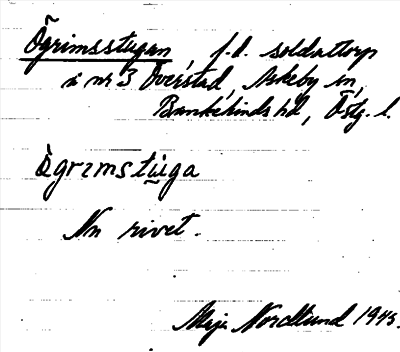 Ögrimsstugan, f.d. soldattorp
å nr 3 Överstad, Askeby sn,
Bankekinds hd, Östg. l.
ògrɪmstu̇ga
Nu rivet.
Maja Nordlund 1945.